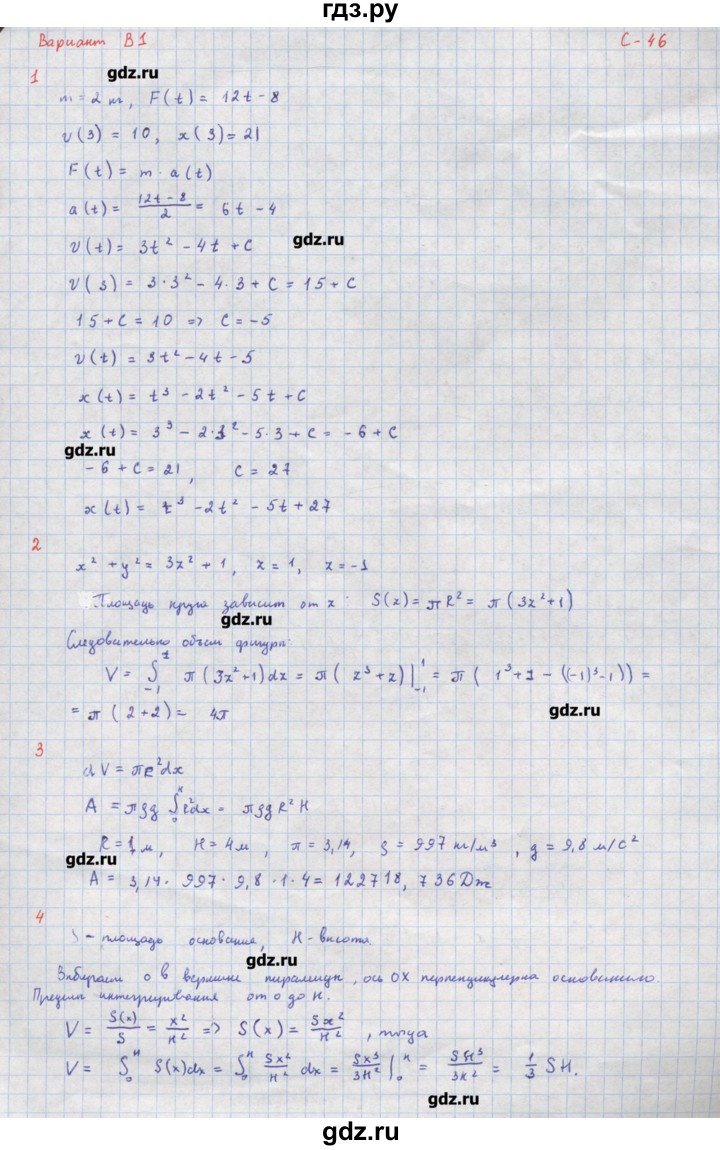 гдз.ру
Вариант В1 С-46
gdz.ru
1
m = 2 кг, F(t) = 12t - 8
v(3) = 10, x(3) = 21
F(t) = m · a(t)
a(t) = (12t - 8)/2 = 6t - 4
gdz.ru
v(t) = 3t² - 4t + C
v(3) = 3·3² - 4·3 + C = 15 + C
15 + C = 10 => C = -5
v(t) = 3t² - 4t - 5
x(t) = t³ - 2t² - 5t + C
x(t) = 3³ - 2·3² - 5·3 + C = -6 + C
gdz.ru
-6 + C = 21, C = 27
x(t) = t³ - 2t² - 5t + 27
2
x² + y² = 3z² + 1, z = 1, z = -1
Площадь круга зависит от z S(z) = πR² = π(3z²+1)
gdz.ru
Следовательно объем фигуры:
V = ∫₋₁¹ π(3z²+1)dz = π(z³+z)|₋₁¹ = π(1³+1 - ((-1)³-1)) =
= π(2+2) = 4π
gdz.ru
3
dV = πR²dx
A = πρg ∫₀ᴴ R²dx = πρg R² H
R = 1 м, H = 4 м, π = 3,14, ρ = 997 кг/м³, g = 9,8 м/с²
gdz.ru
A = 3,14 · 997 · 9,8 · 1 · 4 = 122718,736 Дж
4
S - площадь основания, H - высота
gdz.ru
Выбираем О в вершине пирамиды, ось OX перпендикулярна основанию.
Пределы интегрирования от 0 до H.
V = S(x)/S = x²/H² => S(x) = Sx²/H², тогда
V = ∫₀ᴴ S(x)dx = ∫₀ᴴ Sx²/H² dx = Sx³/3H² |₀ᴴ = SH³/3H² = 1/3 SH.
gdz.ru
gdz.ru